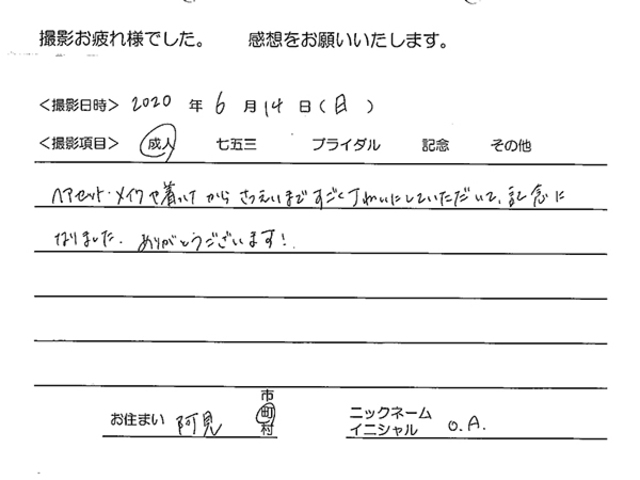 撮影お疲れ様でした。　感想をお願いいたします。
<撮影日時> 2020 年 6 月 14 日(日)
<撮影項目> 成人　七五三　ブライダル　記念　その他
ヘアセット・メイクや着付けからさつえいまですごく丁ねいにしていただいて、記念に
なりました。ありがとうございます!
お住まい 阿見 市 町 村
ニックネーム
イニシャル O.A.